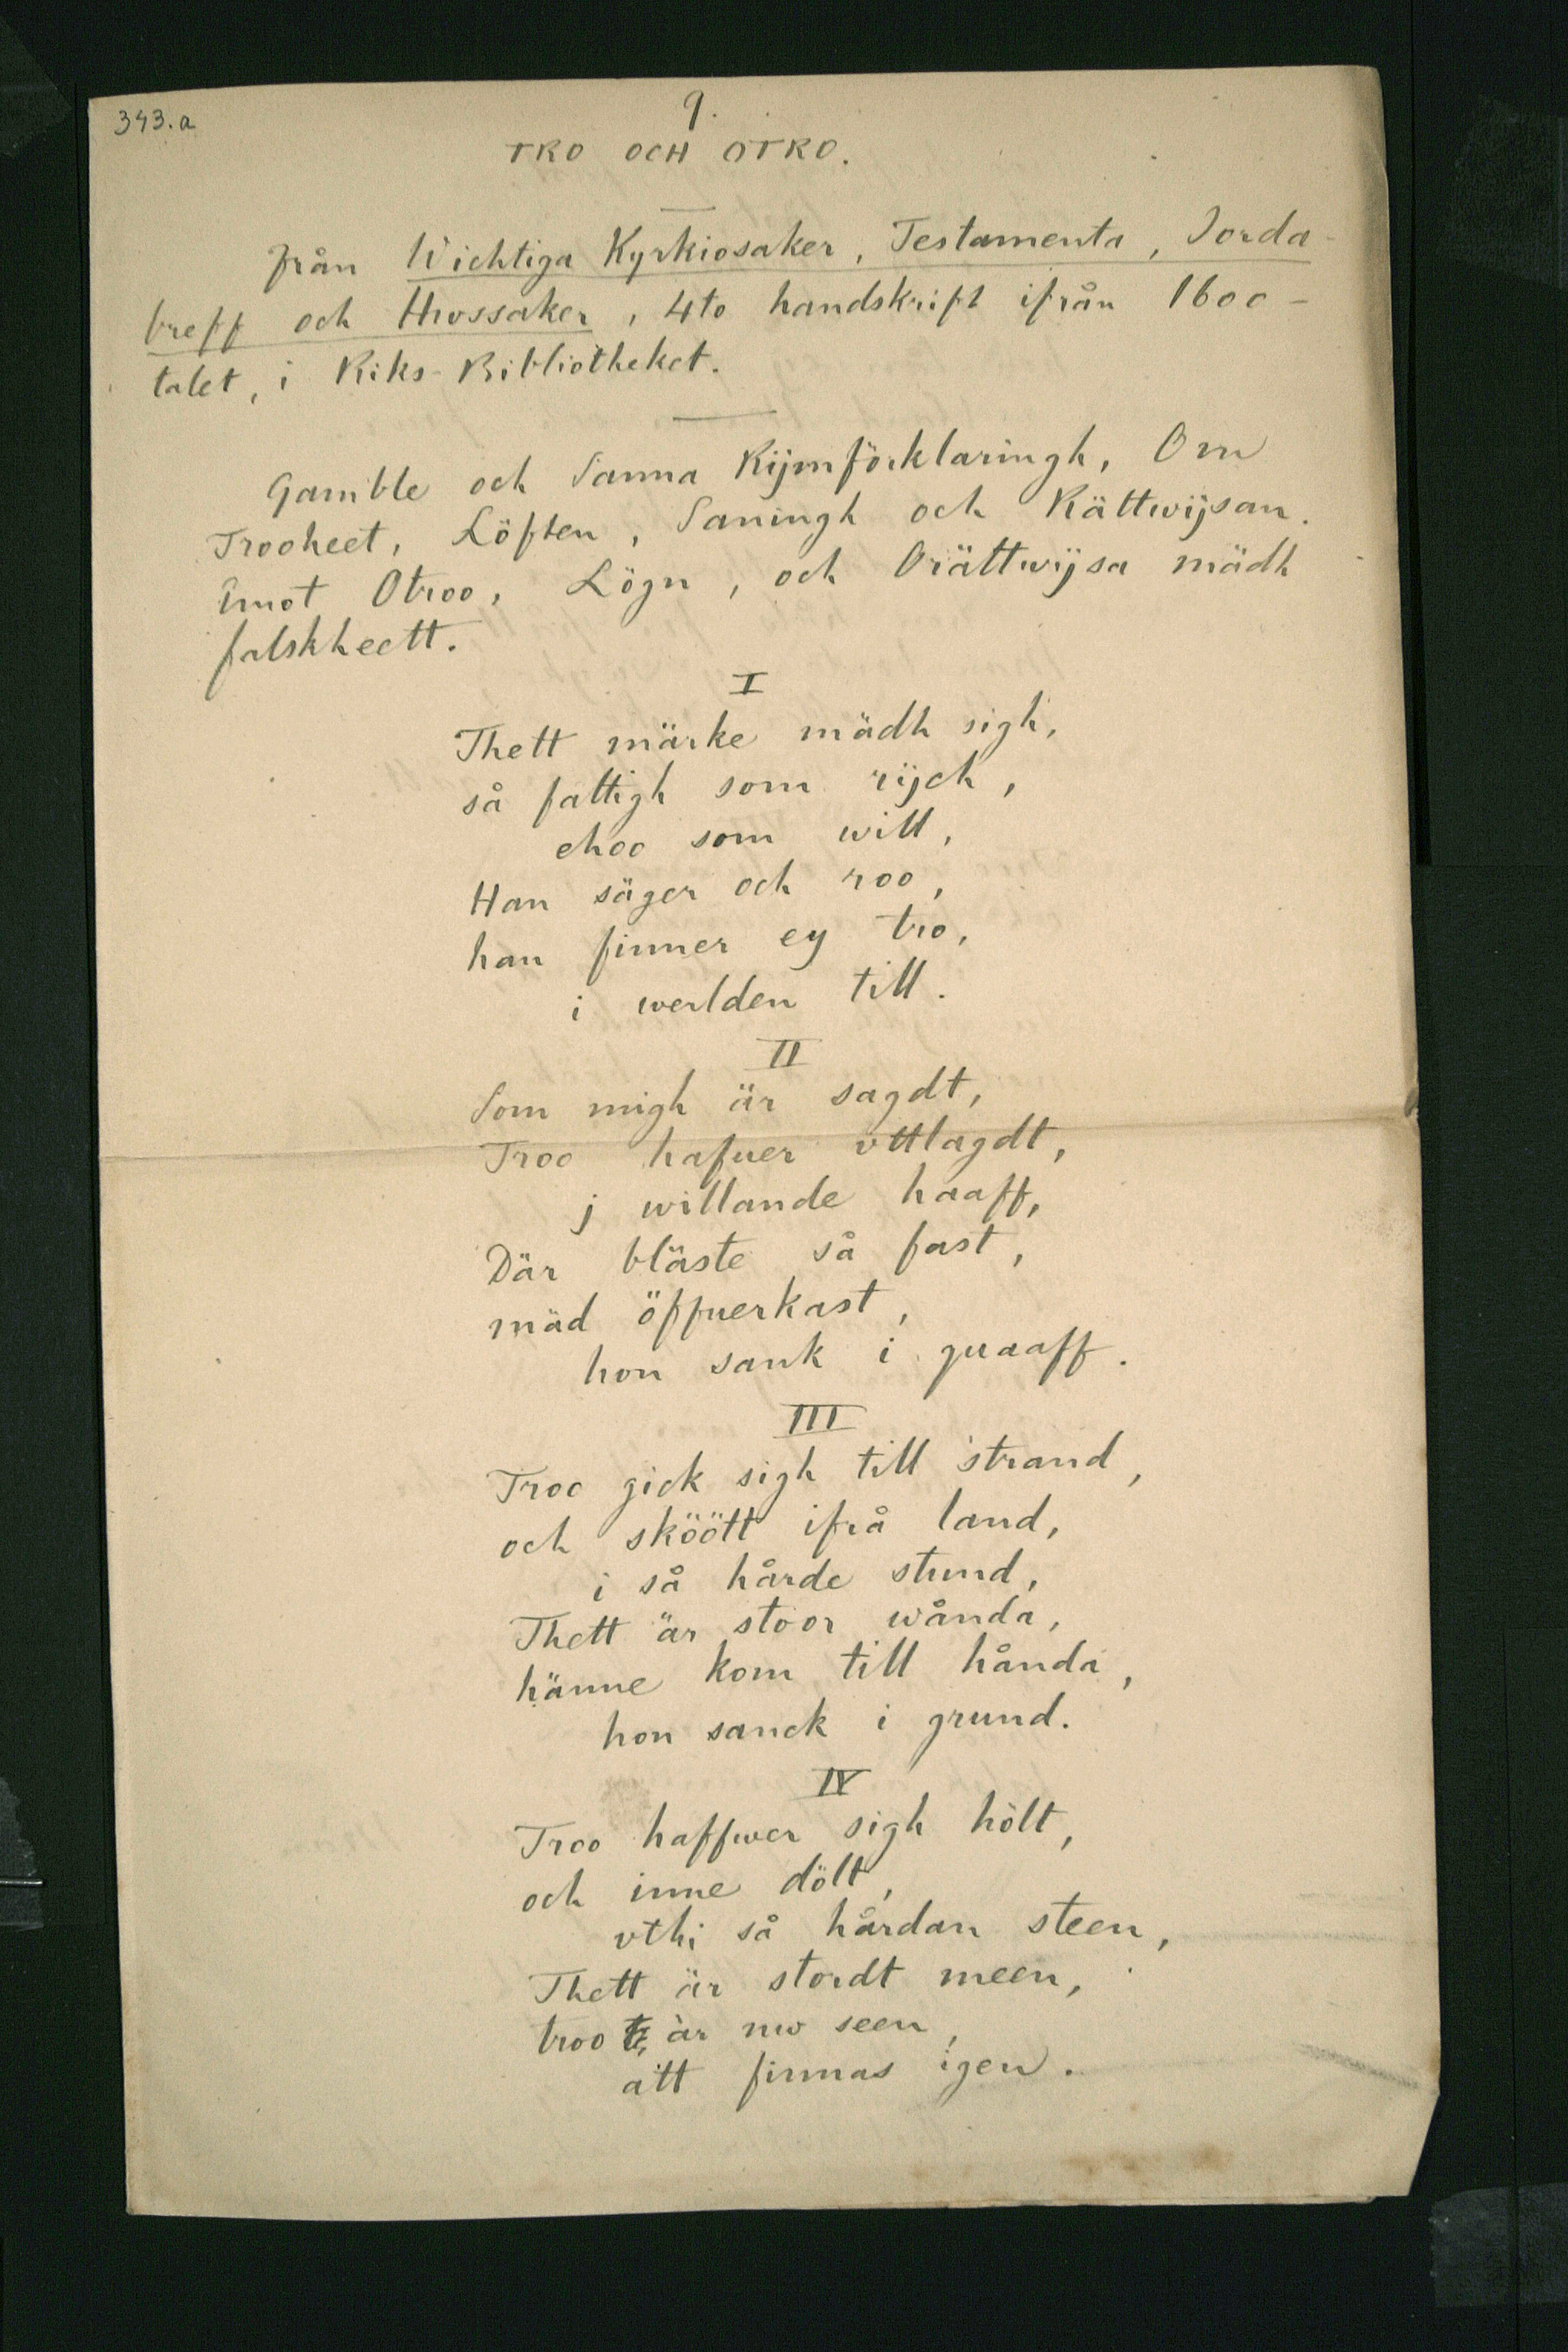 343.a
9.
TRO OCH OTRO.
Från Wichtiga Kyrkiosaker, Testamenta, Jorda-
breff och Hwssaker, 4to handskrift ifrån 1600-
talet, i Riks-Bibliotheket.
Gamble och Sanna Rijmförklaringh, Om
Trooheet, Löften, Saningh och Rättwijsan.
Emot Otroo, Lögn, och Orättwijsa mädh
falskheett.
I
Thett märke mädh sigh,
så fattigh som rijch,
ehoo som will,
Han säger och roo,
han finner ey tro,
i werlden till.
II
Som migh är sagdt,
Troo hafuer vttlagdt,
j willande haaff,
Där bläste så fast,
mäd öffuerkast,
hon sank i quaaff.
III
Troo gick sigh till strand,
och sköött ifrå land,
i så hårde stund,
Thett är stoor wånda,
hänne kom till hånda,
hon sanck i grund.
IV
Troo haffwer sigh hölt,
och inne dölt,
vthi så hårdan steen,
Thett är stordt meen,
troo är nw seen,
att finnas igen.